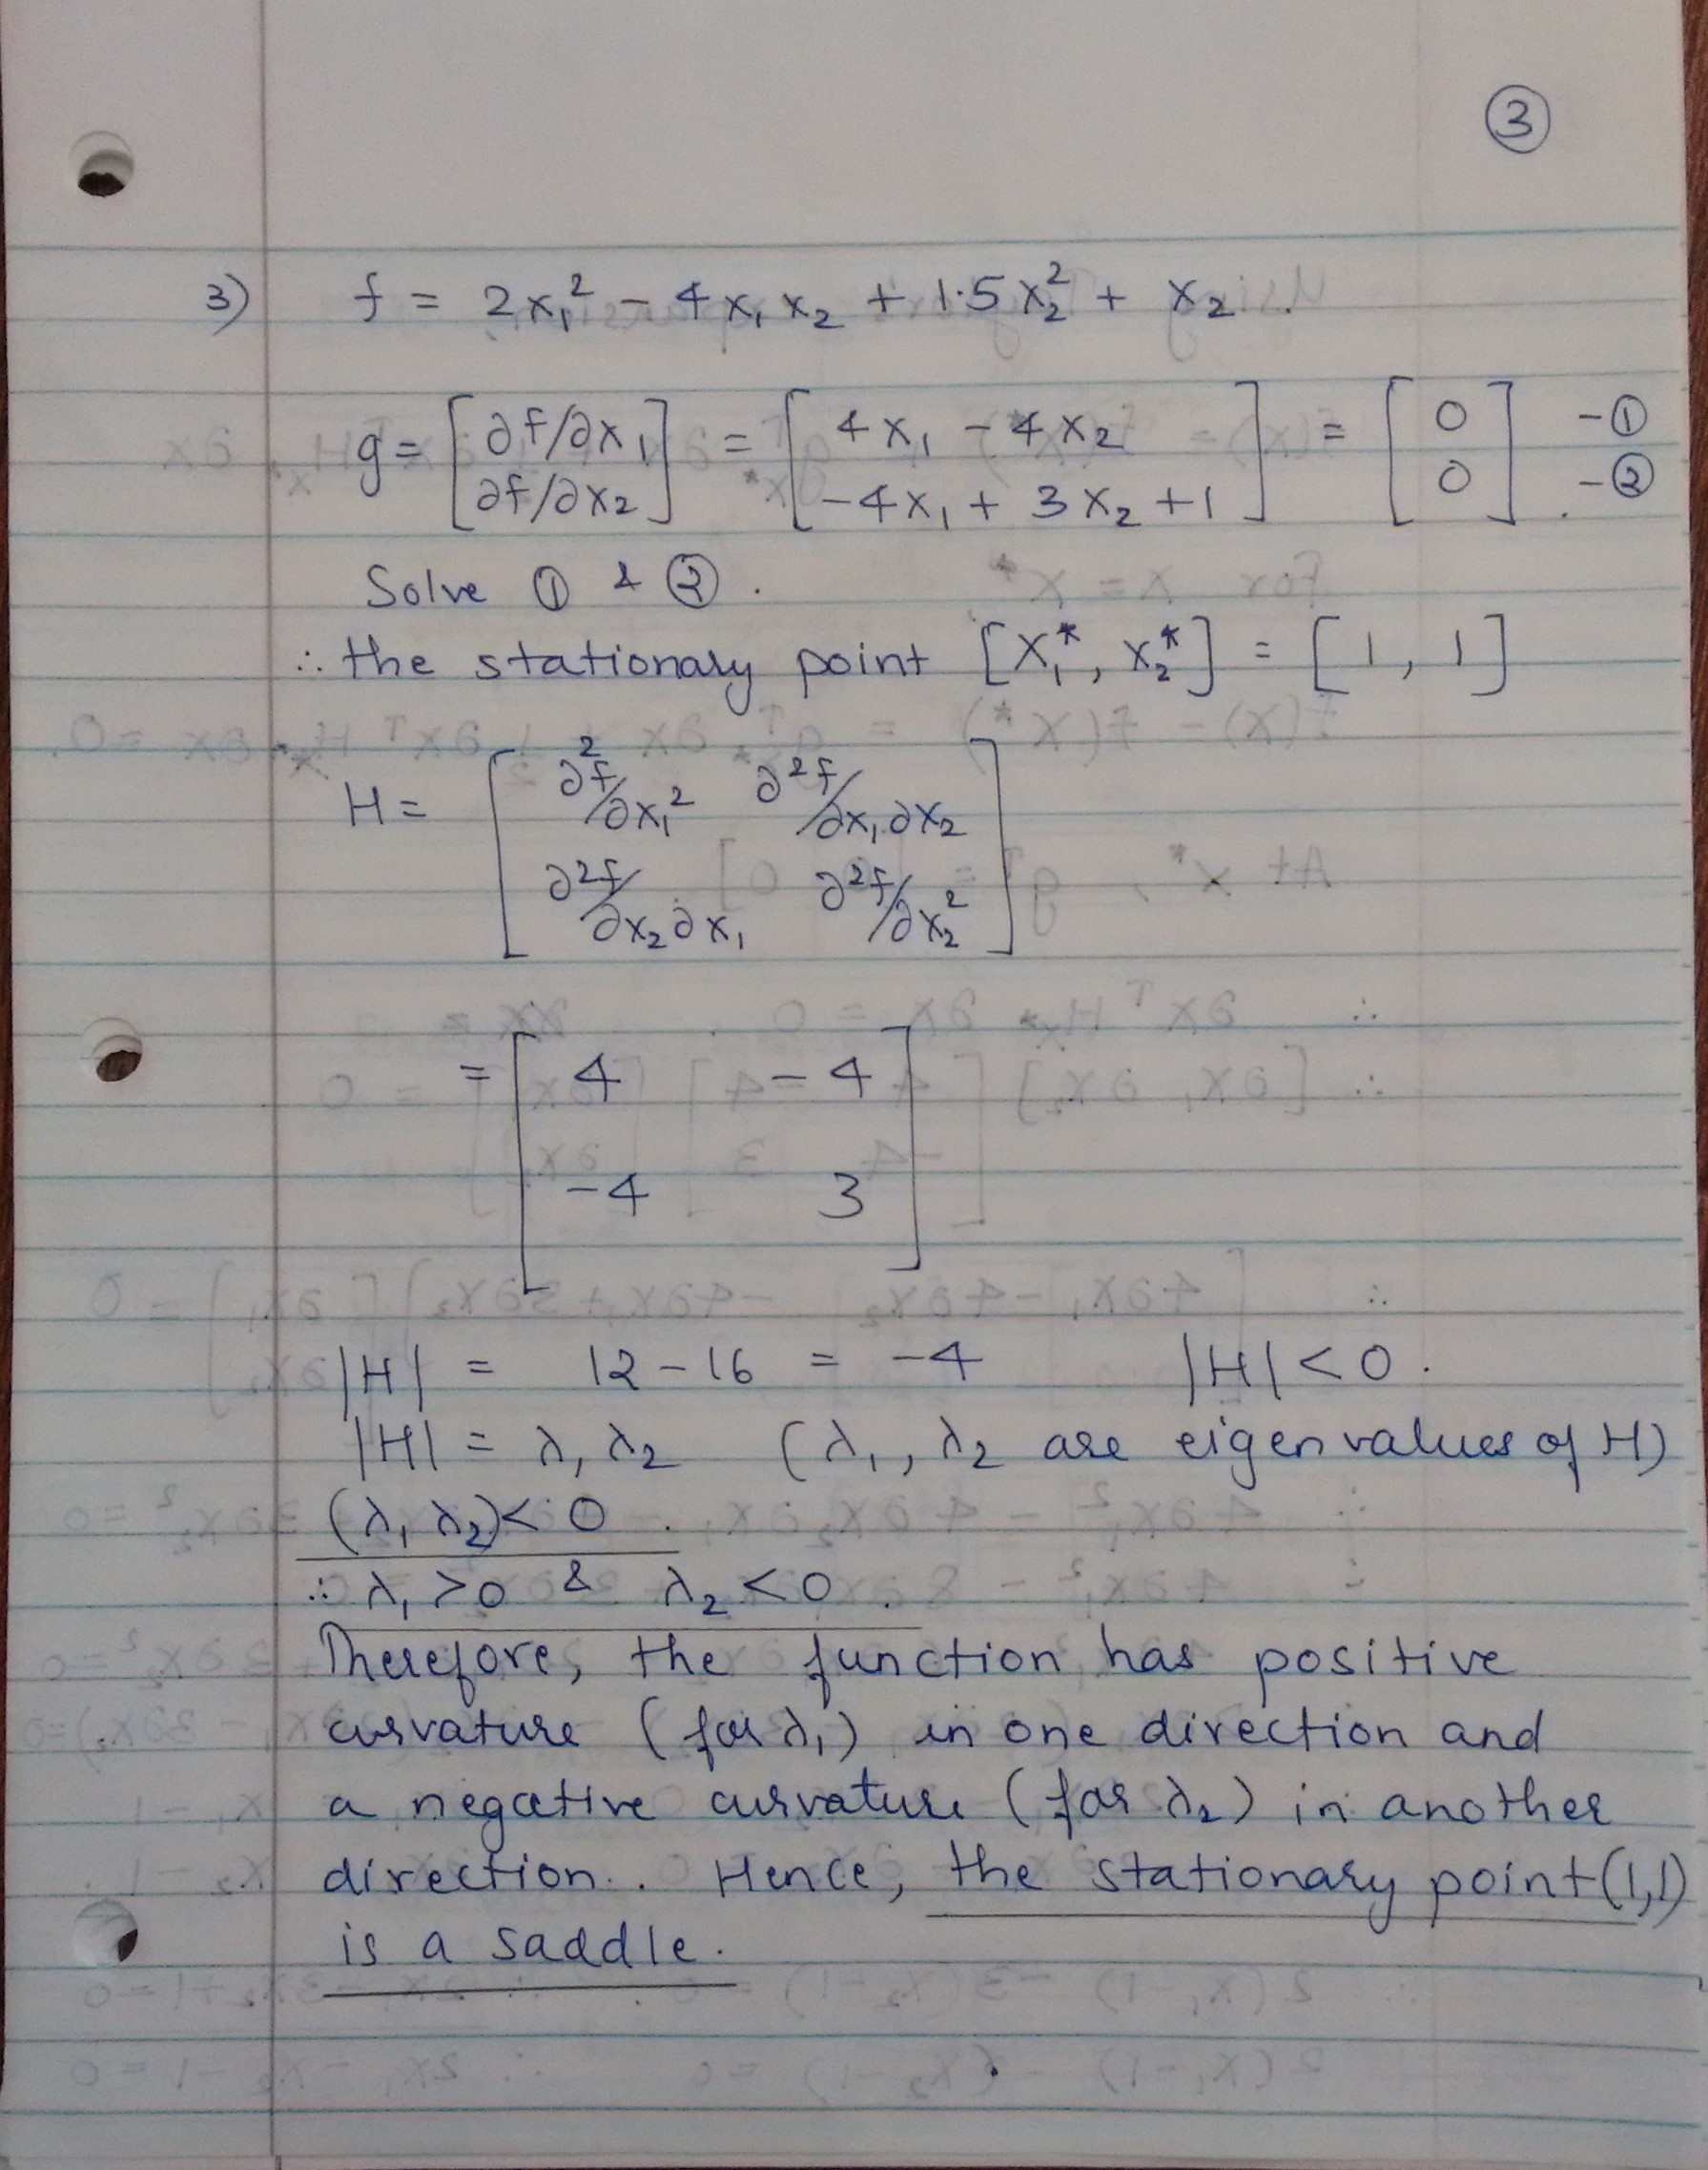 ③
3) f = 2x₁² - 4x₁x₂ + 1.5x₂² + x₂.
g = [∂f/∂x₁ ∂f/∂x₂] = [4x₁ - 4x₂ -4x₁ + 3x₂ + 1] = [0 0] -① -②.
Solve ① & ②.
∴ the stationary point [x₁*, x₂*] = [1, 1]
H = [∂²f/∂x₁² ∂²f/∂x₁∂x₂
∂²f/∂x₂∂x₁ ∂²f/∂x₂²]
= [4 -4
-4 3]
|H| = 12 - 16 = -4 |H| < 0.
|H| = λ₁λ₂ (λ₁, λ₂ are eigen values of H)
(λ₁λ₂) < 0.
∴ λ₁ > 0 & λ₂ < 0.
Therefore, the function has positive
curvature (for λ₁) in one direction and
a negative curvature (for λ₂) in another
direction.. Hence, the stationary point (1,1)
is a saddle.